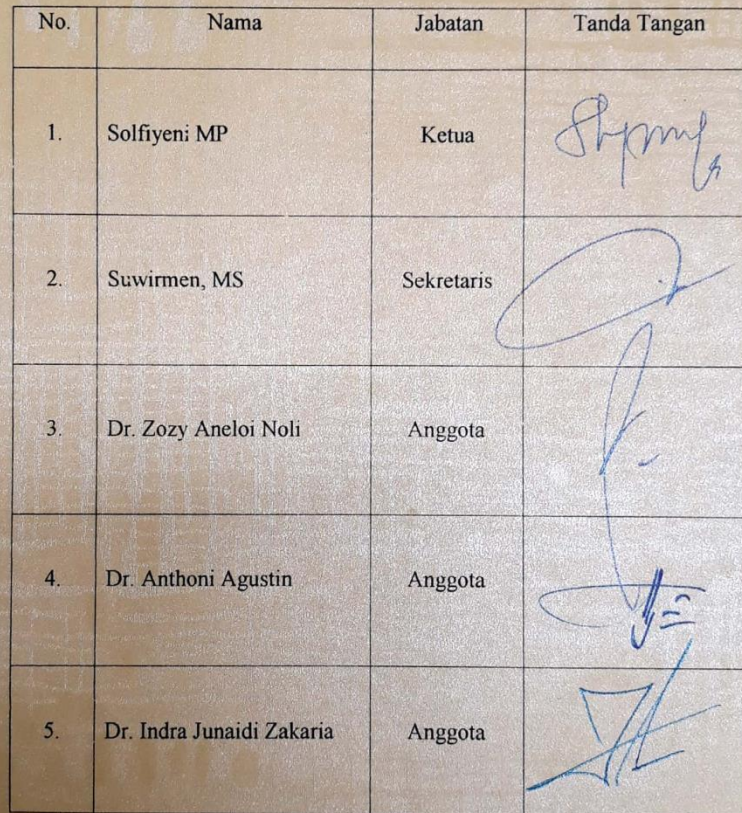 No. Nama Jabatan Tanda Tangan
1. Solfiyeni MP Ketua
2. Suwirmen, MS Sekretaris
3. Dr. Zozy Aneloi Noli Anggota
4. Dr. Anthoni Agustin Anggota
5. Dr. Indra Junaidi Zakaria Anggota